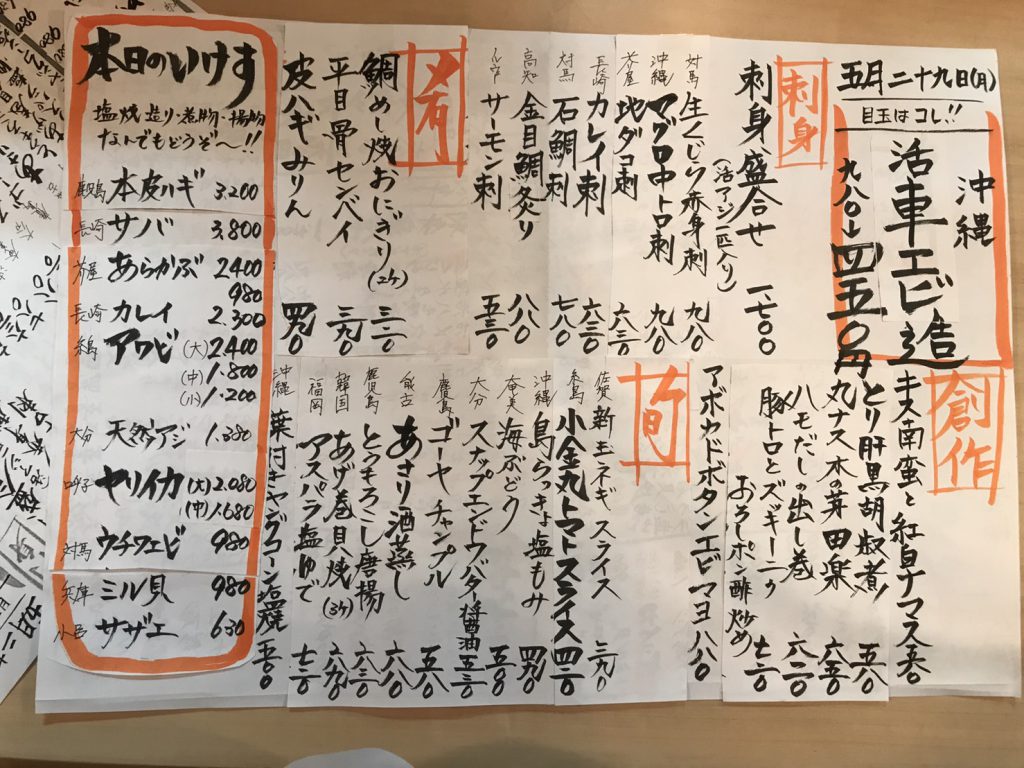 五月二十九日(月)
目玉はコレ!!
沖縄
活車エビ造
九八〇→四五〇円
刺身
刺身盛合せ 一七〇〇
(活アジ一匹入り)
対馬 生くじら赤身刺 九八〇
沖縄 マグロ中トロ刺 九八〇
芦屋 地ダコ刺 六八〇
長崎 カレイ刺 六八〇
対馬 石鯛刺 七八〇
高知 金目鯛炙り 八八〇
ノルウェー サーモン刺 五八〇
鯛めし焼おにぎり(2ケ) 三二〇
平目骨センベイ 三九〇
皮ハギみりん 四九〇
創作
キス南蛮と紅白ナマス 五八〇
とり肝黒胡椒煮 五八〇
丸ナス木の茸田楽 六五〇
ハモだしの出し巻 六二〇
豚トロとズッキーニの
おろしポン酢炒め 七二〇
アボカドボタンエビマヨ 八八〇
旬
佐賀 新玉ネギスライス 三九〇
糸島 小金丸トマトスライス 四二〇
沖縄 島らっきょ塩もみ 四九〇
奄美 海ぶどう 五八〇
大分 スナップエンドウバター醤油 五三〇
鹿児島 ゴーヤチャンプル 五八〇
あさり酒蒸し 六八〇
鹿児島 とうもろこし唐揚 六三〇
韓国 あげ巻貝焼(3ケ) 六九〇
福岡 アスパラ塩ゆで 七二〇
沖縄 葉付きヤングコーン岩塩焼 五八〇
本日のいけす
塩焼・造り・煮物・揚物
なんでもどうぞ〜!!
鹿児島 本皮ハギ 3.200
長崎 サバ 3.800
芦屋 あらかぶ 2400
980
長崎 カレイ 2.300
糸島 アワビ (大)2.400
(中)1.800
(小)1.200
大分 天然アジ 1.380
呼子 ヤリイカ (大)2.080
(中)1.680
対馬 ウチワエビ 980
ミル貝 980
小呂 サザエ 630